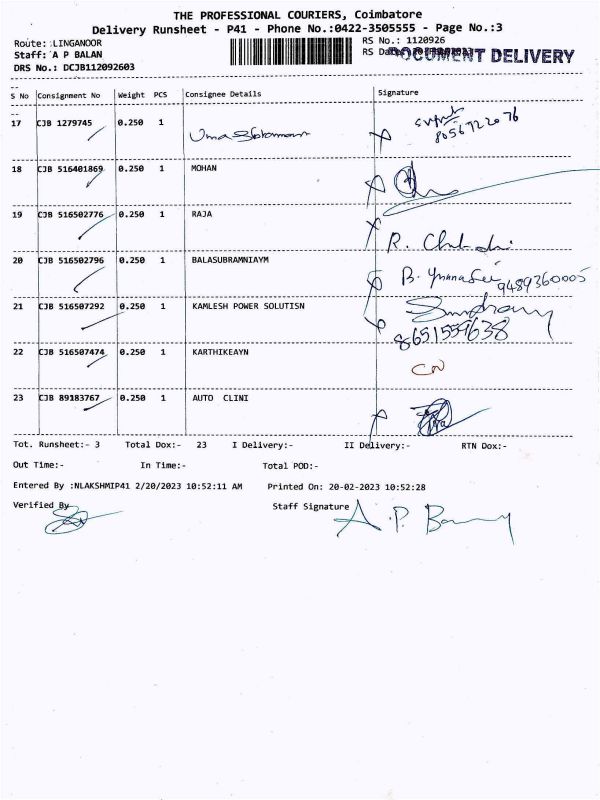 THE PROFESSIONAL COURIERS, Coimbatore
Delivery Runsheet - P41 - Phone No.:0422-3505555 - Page No.:3
Route: LINGANOOR
RS No.: 1120926
Staff: A P BALAN
RS DOCUMENT DELIVERY
DRS No.: DCJB112092603
S No Consignment No Weight PCS Consignee Details Signature
17 CJB 1279745 0.250 1
8056722076
18 CJB 516401869 0.250 1 MOHAN
19 CJB 516502776 0.250 1 RAJA
R.
20 CJB 516502796 0.250 1 BALASUBRAMNIAYM
B. 9489360005
21 CJB 516507292 0.250 1 KAMLESH POWER SOLUTISN
8651559638
22 CJB 516507474 0.250 1 KARTHIKEAYN
CN
23 CJB 89183767 0.250 1 AUTO CLINI
Tot. Runsheet:- 3 Total Dox:- 23 I Delivery:- II Delivery:- RTN Dox:-
Out Time:- In Time:- Total POD:-
Entered By :NLAKSHMIP41 2/20/2023 10:52:11 AM Printed On: 20-02-2023 10:52:28
Verified By
Staff Signature A.P.